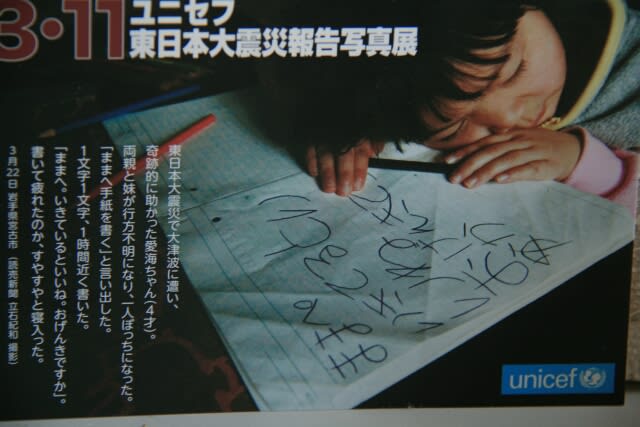 3・11 ユニセフ
東日本大震災報告写真展
東日本大震災で大津波に遭い、
奇跡的に助かった愛海ちゃん(4才)。
両親と妹が行方不明になり、一人ぼっちになった。
「ままへ手紙を書く」と言い出した。
1文字1文字、1時間近く書いた。
「ままへ。いきているといいね。おげんきですか」。
書いて疲れたのか、すやすやと寝入った。
3月22日 岩手県宮古市 (読売新聞 立石紀和 撮影)
unicef